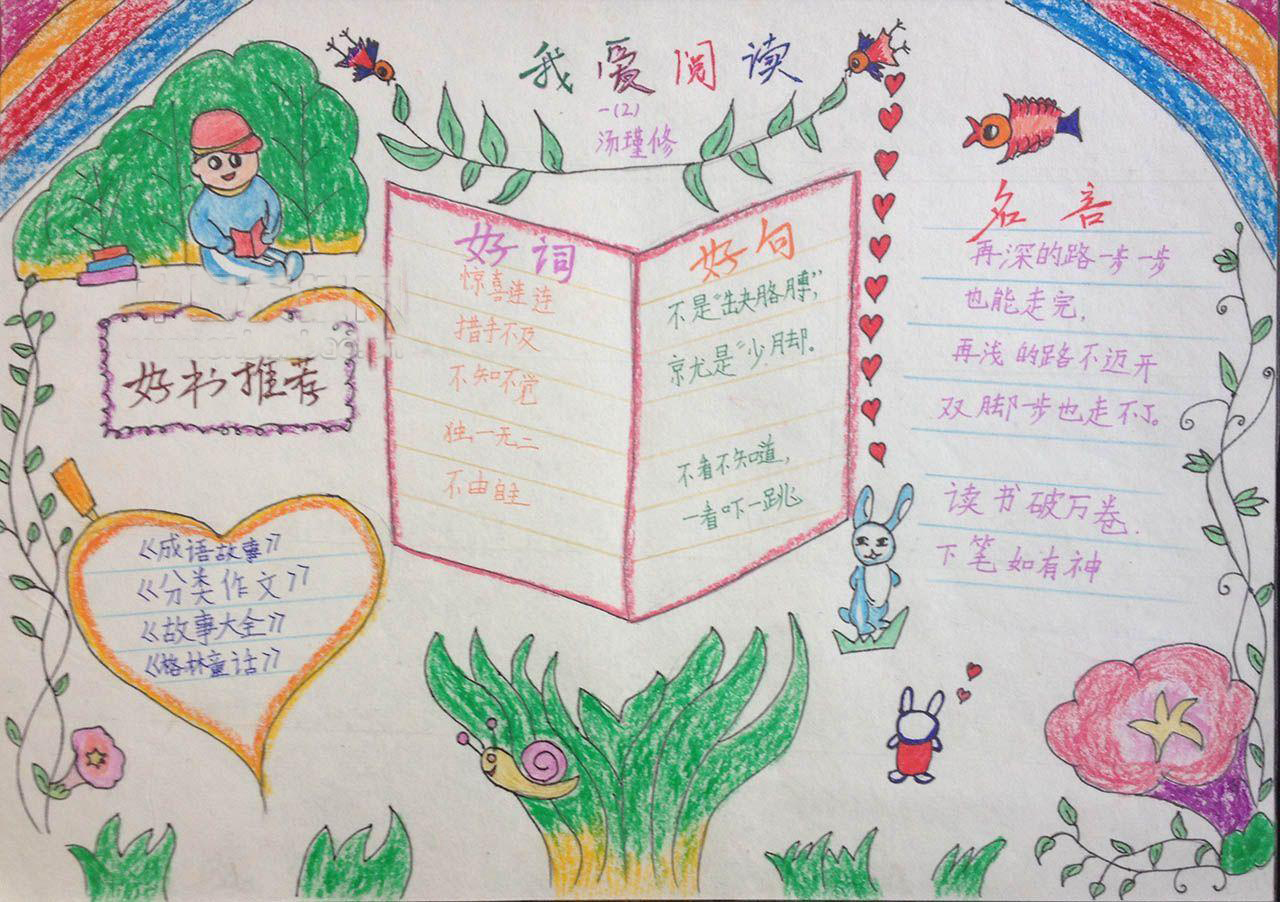 我爱阅读
一(2)
汤瑾修
好书推荐
《成语故事》
《分类作文》
《故事大全》
《格林童话》
好词
惊喜连连
措手不及
不知不觉
独一无二
不由自主
好句
不是“缺胳膊”,
就是“少脚。
不看不知道,
一看吓一跳
名言
再深的路一步一步
也能走完,
再浅的路不迈开
双脚一步也走不了。
读书破万卷.
下笔如有神